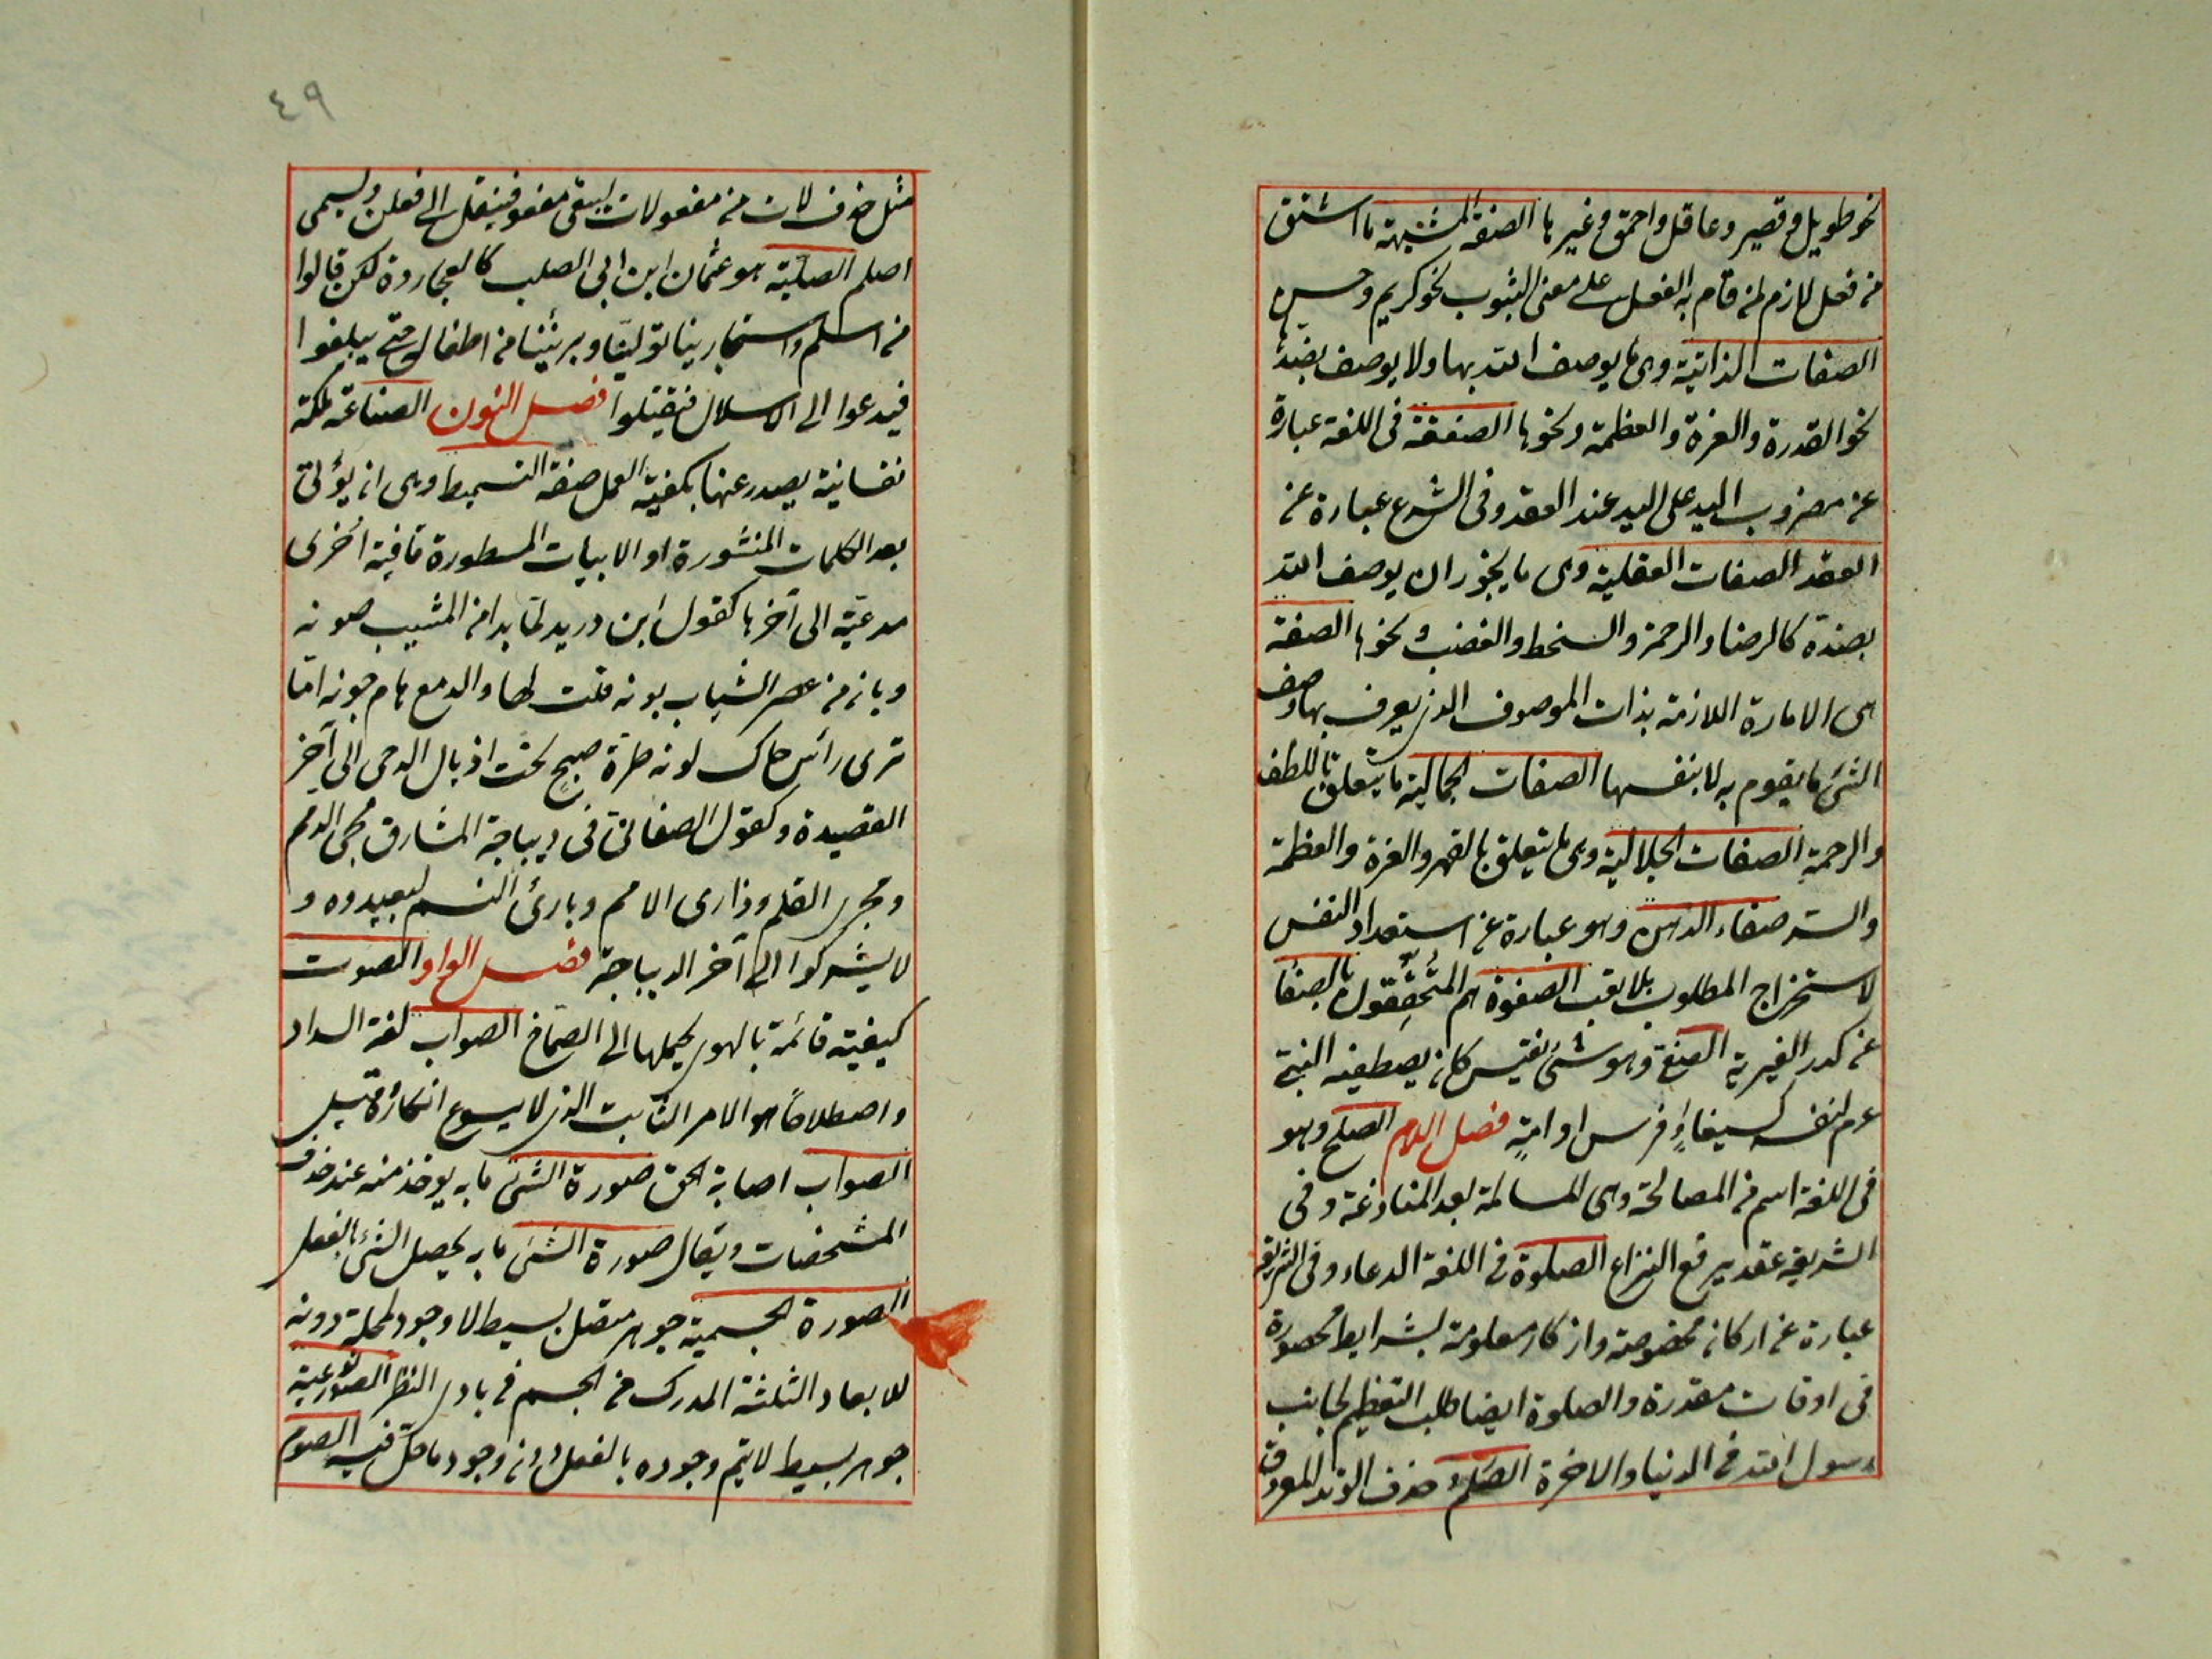 نحو طويل وقصير وعاقل واحمق وغيرها الصفة المشبهة ما اشتق
من فعل لازم لمن قام به الفعل على معنى الثبوب نحو كريم وحسن
الصفات الذاتية وهى ما يوصف الله بها ولا يوصف بضدها
نحو القدرة والعزة والعظمة ونحوها الصفقة فى اللغة عبارة
عن مضروب اليد على اليد عند العقد وفى الشرع عبارة عن
العقد الصفات العقلية وهى ما يجوز ان يوصف الله
بضده كالرضا والرحمة والسخط والغضب ونحوها الصفة
هى الامارة اللازمة بذات الموصوف الذى يعرف بها وصف
الشئ ما يقوم به لا بنفسها الصفات الجمالية ما يتعلق باللطف
والرحمة الصفات الجلالية وهى ما يتعلق بالقهر والعزة والعظمة
والستر صفاء الذهن وهو عبارة عن استعداد النفس
لاستخراج المطلوب بلا تعب الصفوة هم المتحققون بالصفا
عن كدر الغيرية الصفى وهو شئ نفيس كان يصطفيه النبى
عم لنفسه كسيف او فرس او امة فصل اللام الصلح وهو
فى اللغة اسم من المصالحة وهى المسالمة بعد المنازعة وفى
الشريعة عقد يرفع النزاع الصلوة فى اللغة الدعاء وفى الشريعة
عبارة عن اركان مخصوصة واذكار معلومة بشرايط محصورة
فى اوقات مقدرة والصلوة ايضا طلب التعظيم لجانب
رسول الله فى الدنيا والاخرة الصلم حذف الوتد المفروق
٤٩
مثل حذف لات من مفعولات ليبقى مفعو فينقل الى فعلن ويسمى
اصلم الصلتية هو عثمان ابن ابى الصلت كالعجاردة لكن قالوا
من اسلم واستجار بنا توليناه وبرئنا من اطفاله حتى يبلغوا
فيدعوا الى الاسلال فيقبلوا فصل النون الصناعة ملكة
نفسانية يصدر عنها بكيفية العمل صنعة التسميط وهى ان يؤتى
بعد الكلمات المنثورة او الابيات المسطورة قافية اخرى
مدعية الى آخرها كقول ابن دريد لما بدا من المشيب صونه
وبان من عصر الشباب بونه قلت لها والدمع هام جونه اما
ترى رأس حاك لونه طرة صبح تحت اذيال الدجى الى آخر
القصيدة وكقول الصغانى فى ديباجة المشارق محى الرمم
ومجرى القلم وذارى الامم وبارئ النسم ليعبدوه و
لا يشركوا الى آخر الديباجة فصل الواو الصوت
كيفية قائمة بالهوى يحملها الى الصماخ الصواب لغة السداد
واصطلاحا هو الامر الثابت الذى لا يسوغ انكاره قيل
الصواب اصابة الحق صورة الشئ ما به يوخذ منه عند حذف
المشخصات ويقال صورة الشئ ما به يحصل الشئ بالفعل
الصورة الجسمية جوهر متصل بسيط لا وجود لمحله دونه
للابعاد الثلثة المدرك من الجسم فى بادى النظر الصورة النوعية
جوهر بسيط لا يتم وجوده بالفعل دون وجود ما حل فيه الصوم